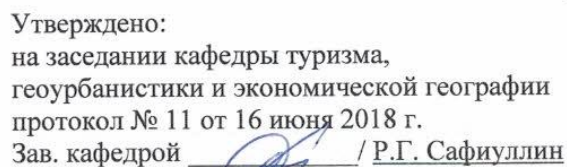 Утверждено:
на заседании кафедры туризма,
геоурбанистики и экономической географии
протокол № 11 от 16 июня 2018 г.
Зав. кафедрой / Р.Г. Сафиуллин